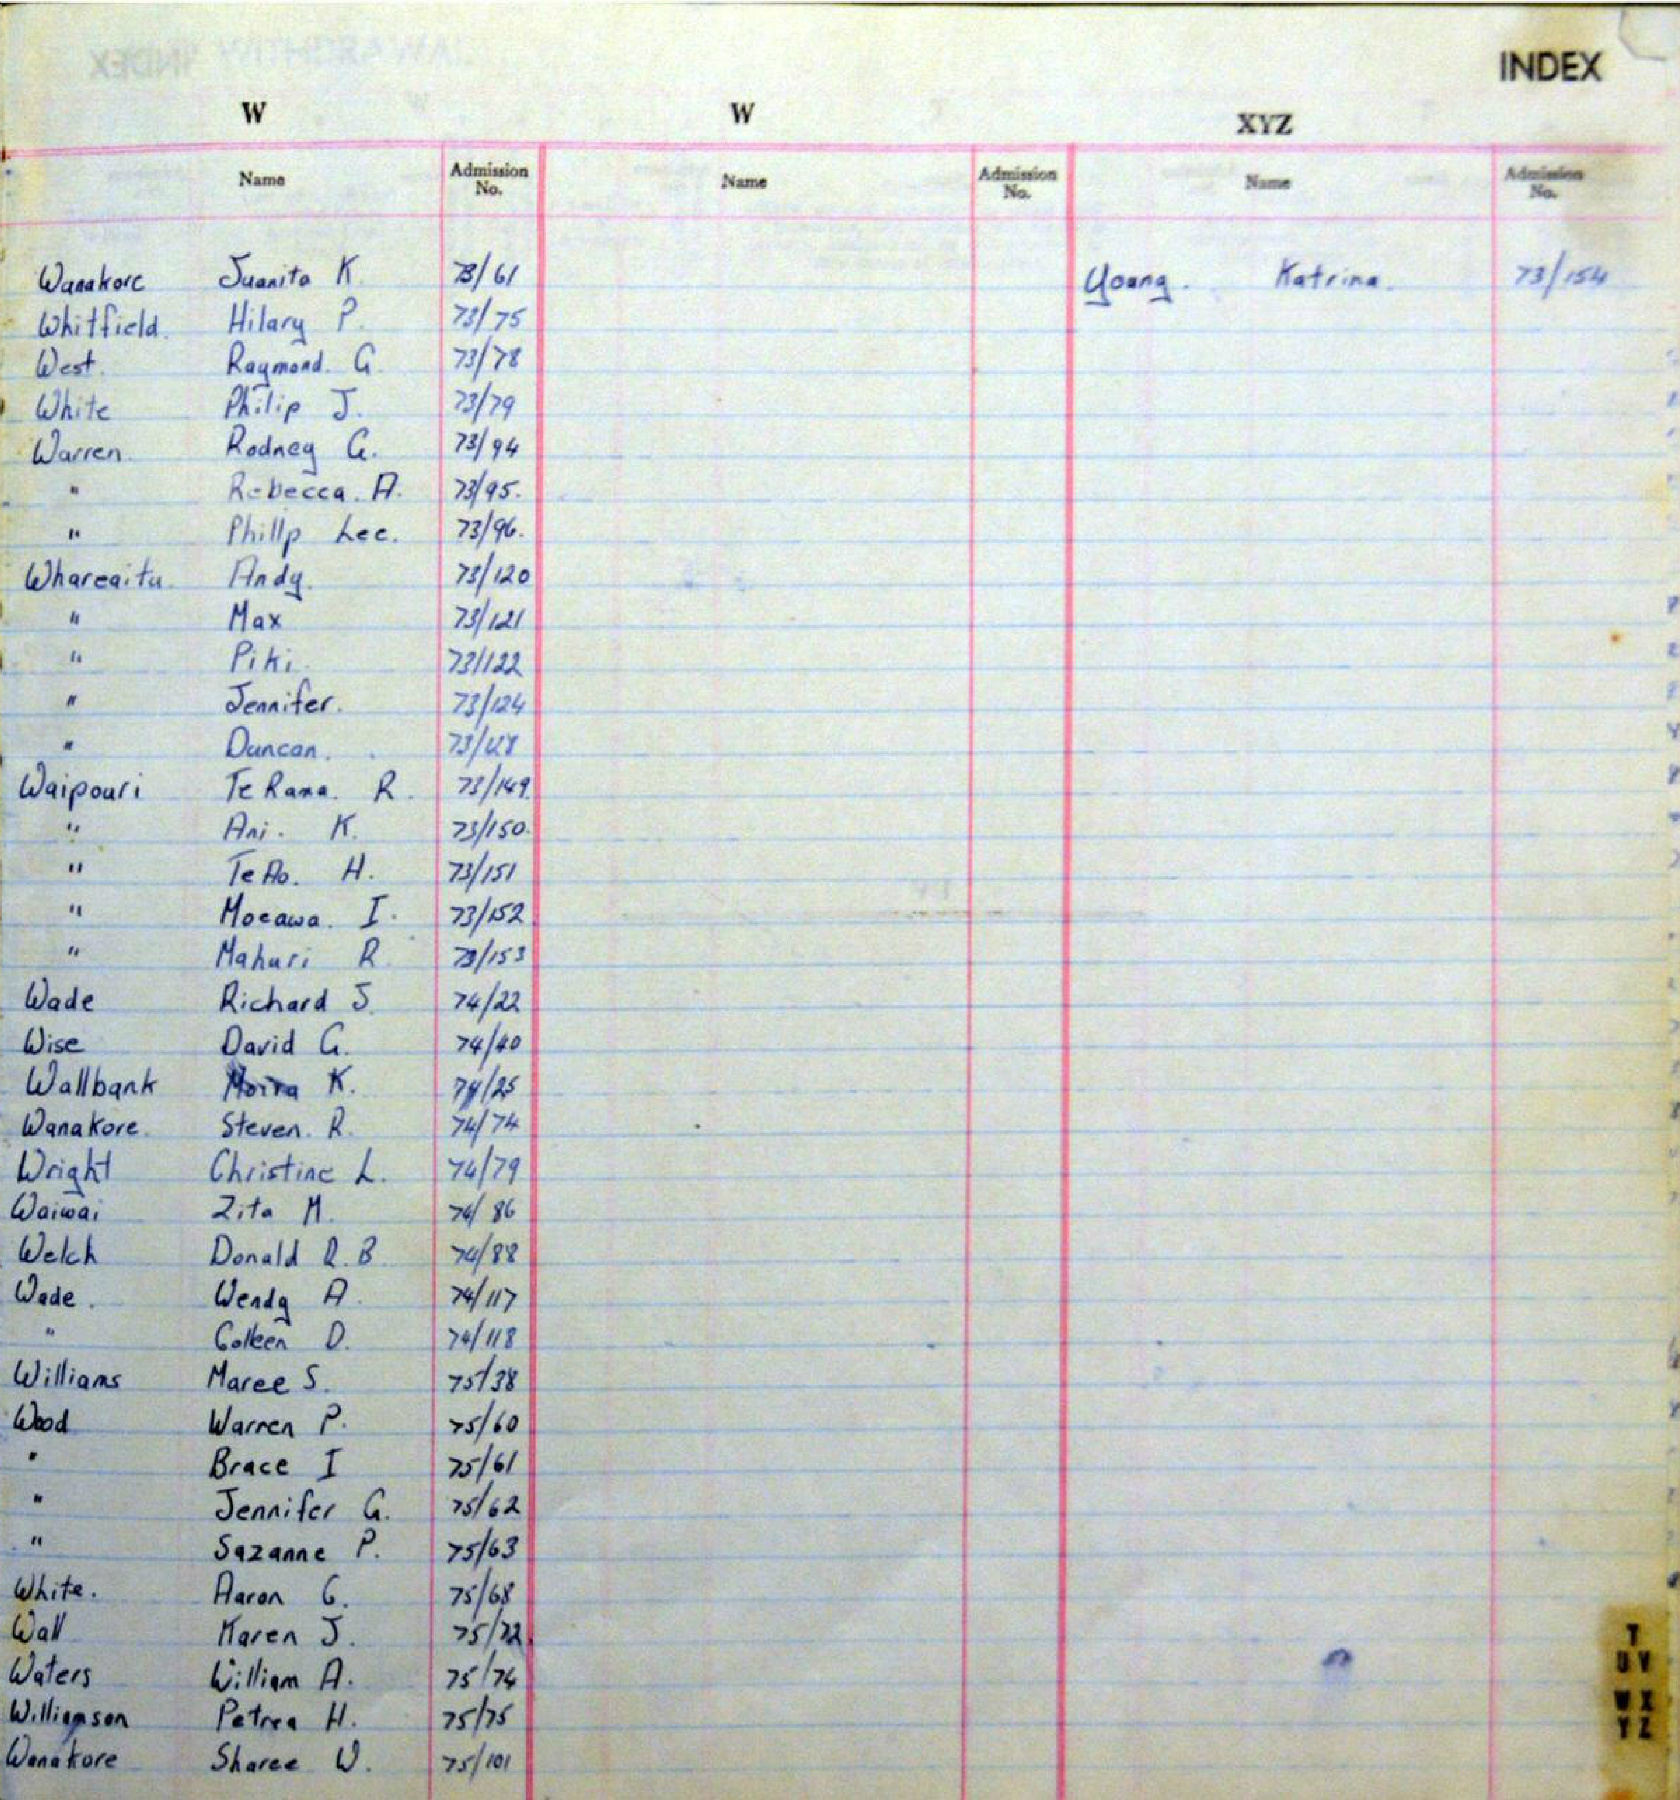 INDEX
W W XYZ
Name Admission No. Name Admission No. Name Admission No.
Wanakore Juanita K. 73/61 Young. Katrina. 73/154
Whitfield. Hilary P. 73/75
West. Raymond. G. 73/78
White Philip J. 73/79
Warren. Rodney G. 73/94
" Rebecca. A. 73/95.
" Phillp Lee. 73/96.
Whareaitu. Andy. 73/120
" Max 73/121
" Piki. 73/122
" Jennifer. 73/124
" Duncan.
Waipouri Te Rama. R. 73/149.
" Ani. K. 73/150.
" Te Ao. H. 73/151
" Moeawa. I. 73/152.
" Mahuri R. 73/153
Wade Richard J. 74/22
Wise David G. 74/40
Wallbank Moira K. 74/25
Wanakore. Steven. R. 74/74
Wright Christine L. 74/79
Waiwai Zita M. 74/86
Welch Donald R.B. 74/88
Wade. Wendy A. 74/117
" Colleen D. 74/118
Williams Maree S. 75/38
Wood Warren P. 75/60
" Bruce I 75/61
" Jennifer G. 75/62
" Suzanne P. 75/63
White. Aaron G. 75/68
Wall Karen J. 75/72.
Waters William A. 75/74
Williamson Petrea H. 75/75
Wanakore Sharee W. 75/101
T
UV
WX
YZ